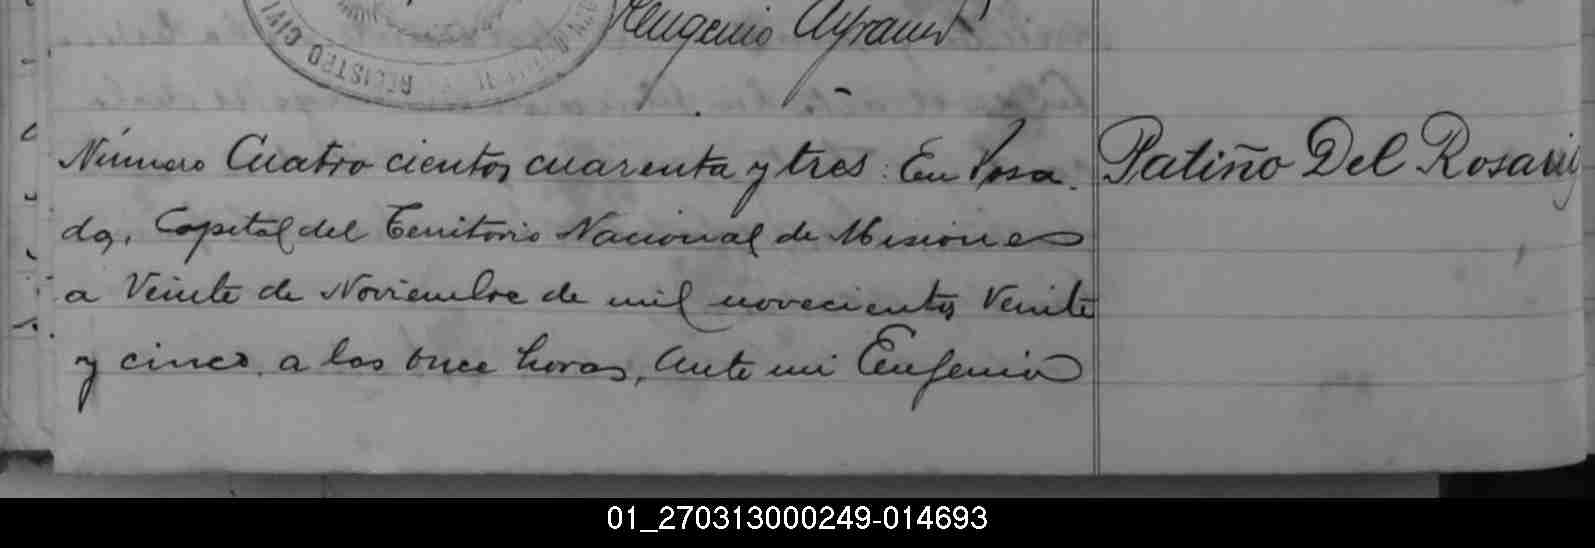 Eugenio Ayrault
REGISTRO CIVIL
Número Cuatro cientos cuarenta y tres: En Posa-
das, Capital del Territorio Nacional de Misiones
a Veinte de Noviembre de mil novecientos Veinte
y cinco, a las once horas, Ante mi Eugenio
Patiño Del Rosario
01_270313000249-014693